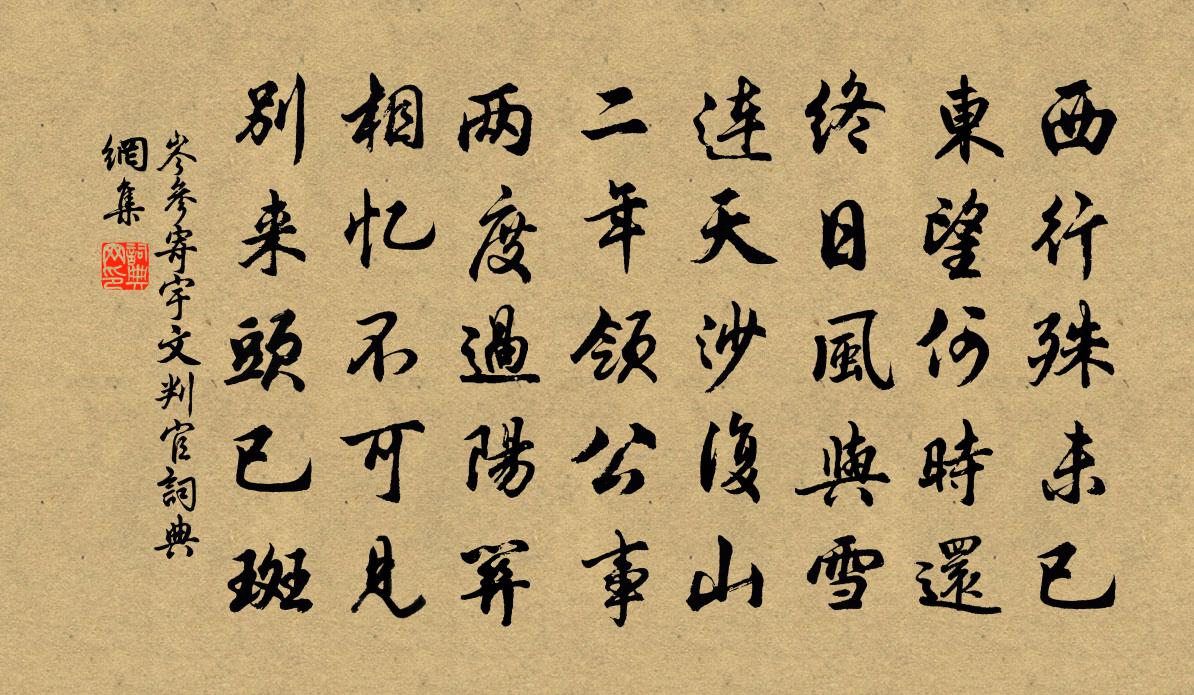 西行殊未已
東望何時還
终日風與雪
连天沙復山
二年領公事
两度過陽關
相忆不可見
别来頭已斑
岑參寄宇文判官詞典
網集
詞典
网印